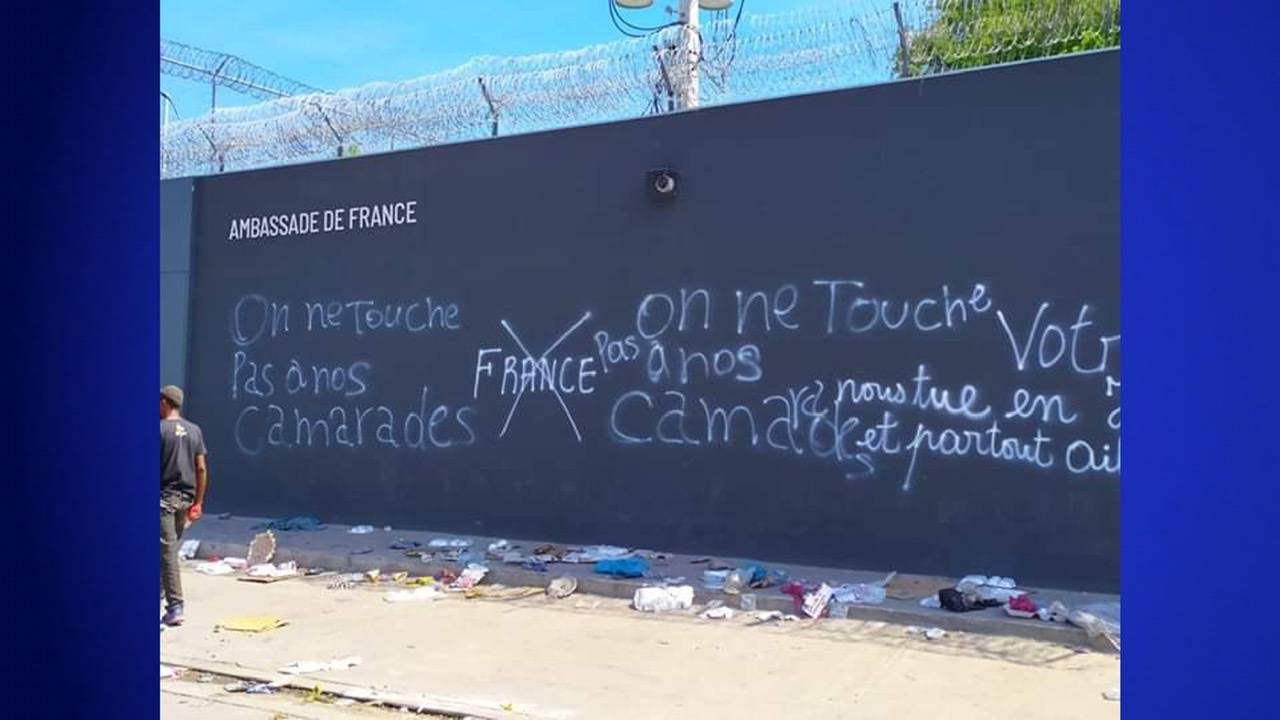 AMBASSADE DE FRANCE
On ne Touche
Pas à nos
camarades
FRANCE
On ne Touche
Pas à nos
camarades
nous tue en
et partout